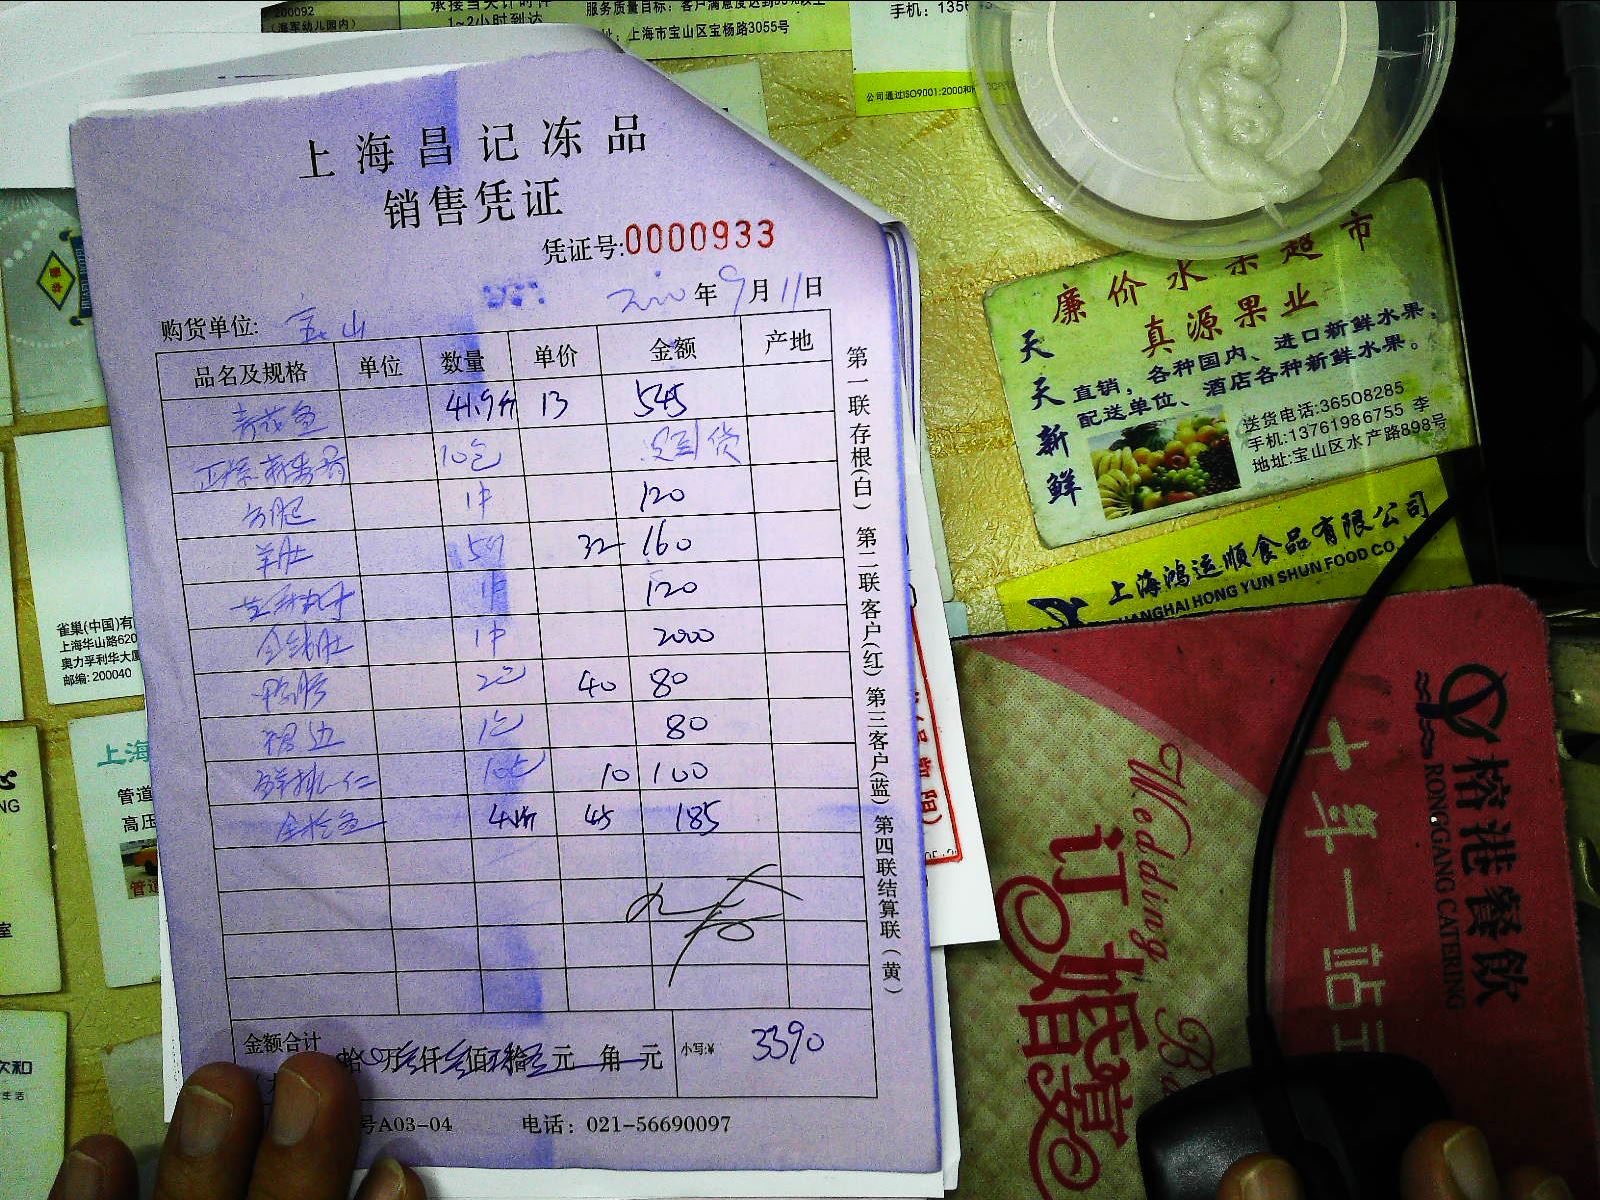 200092
(海军幼儿园内)
1~2小时到达
上海市宝山区宝杨路3055号
手机:
公司通过ISO9001:2000和
上海昌记冻品
销售凭证
凭证号:0000933
年9月11日
购货单位: 宝山
品名及规格 单位 数量 单价 金额 产地
青花鱼 41.9斤 13 545
10包 没到货
1件 120
羊肚 5斤 32 160
1件 120
金钱肚 1件 2000
鸭肠 2包 40 80
裙边 1包 80
10包 10 100
金枪鱼 45 185
金额合计
拾 万 仟 佰 拾 元 角 元 小写:¥ 3390
号A03-04 电话: 021-56690097
第一联存根(白) 第二联客户(红) 第三客户(蓝) 第四联结算联(黄)
廉价水果超市
真源果业
天天新鲜
直销，各种国内、进口新鲜水果，
配送单位、酒店各种新鲜水果。
送货电话:36508285
手机:13761986755 李
地址:宝山区水产路898号
上海鸿运顺食品有限公司
SHANGHAI HONG YUN SHUN FOOD CO.
榕港餐飲
RONGGANG CATERING
十年一站
Wedding
订婚宴
雀巢(中国)有
上海华山路620
奥力孚利华大厦
邮编: 200040
上海
管道
高压
管道